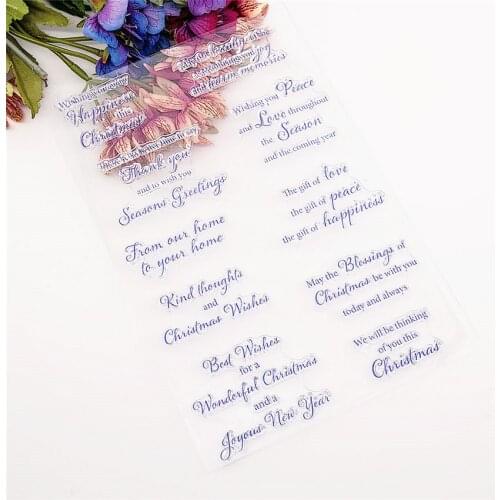 Wishing you
Happiness
this
Christmas
There is no better time to say
Thank you
and to wish you
Seasons Greetings
From our home
to your home
Kind thoughts
and
Christmas Wishes
Best Wishes
for a
Wonderful Christmas
and a
Joyous New Year
joy
and
memories
Wishing you Peace
and Love throughout
the Season
and the coming year
The gift of love
the gift of peace
the gift of happiness
May the Blessings of
Christmas be with you
today and always
We will be thinking
of you this
Christmas